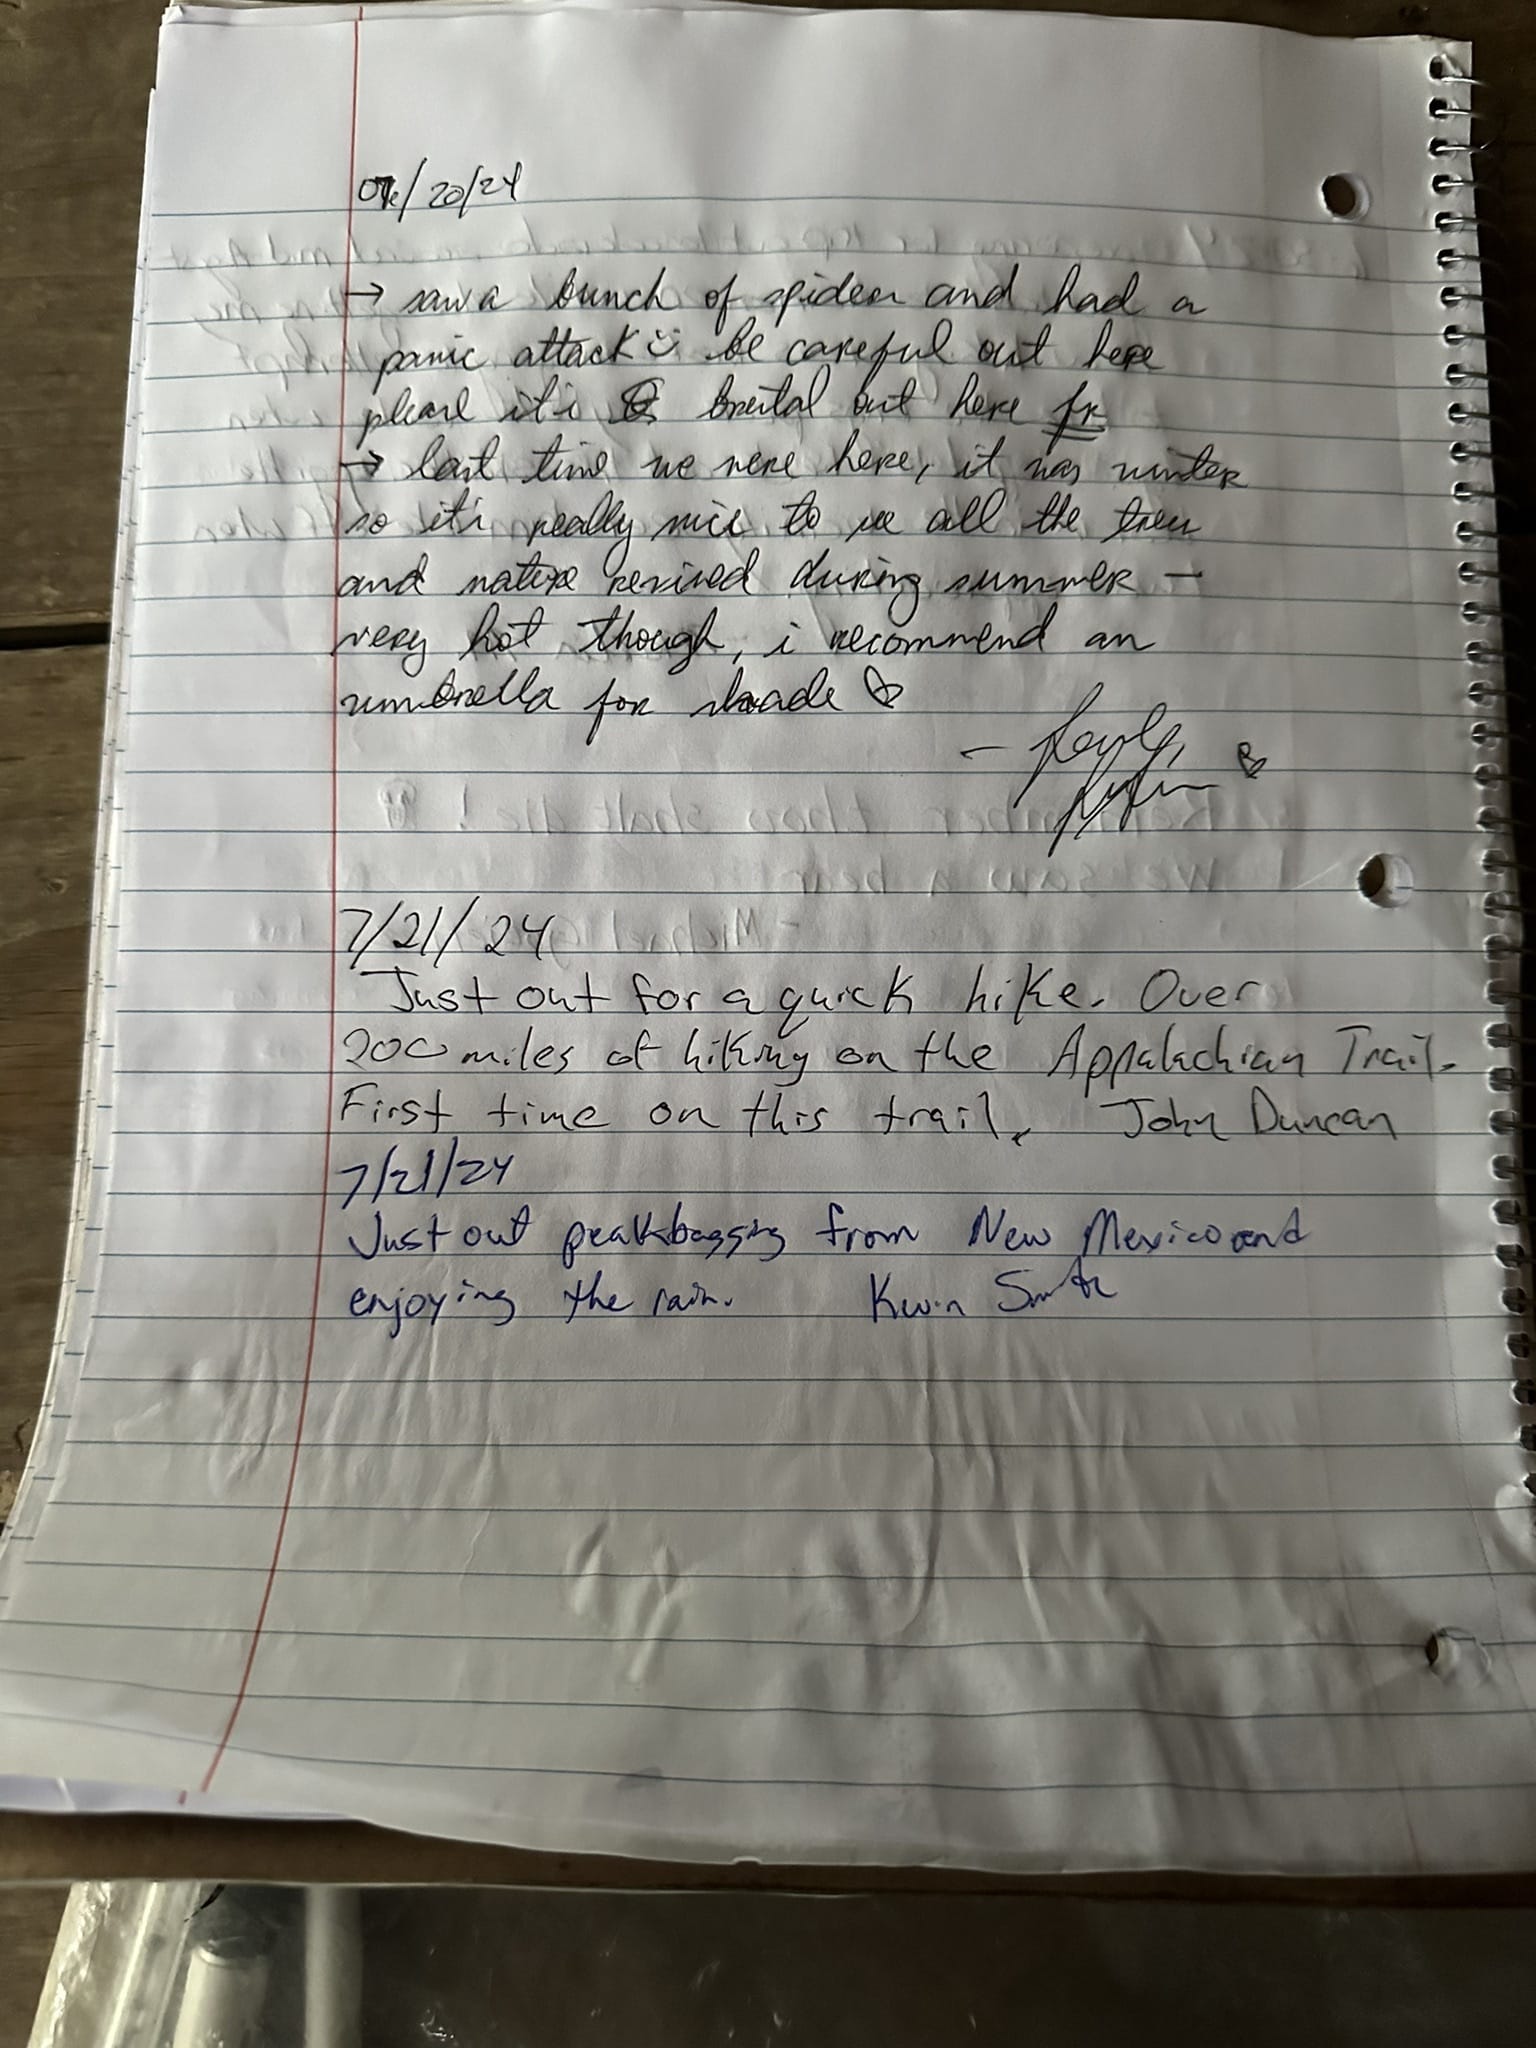 07/20/24
→ saw a bunch of spiders and had a
panic attack :) be careful out here
please it's brutal out here fr
→ last time we were here, it was winter
so it's really nice to see all the trees
and nature revived during summer —
very hot though, i recommend an
umbrella for shade ♡
7/21/24
Just out for a quick hike. Over
200 miles of hiking on the Appalachian Trail.
First time on this trail. John Duncan
7/21/24
Just out peakbagging from New Mexico and
enjoying the rain. Kevin Smith